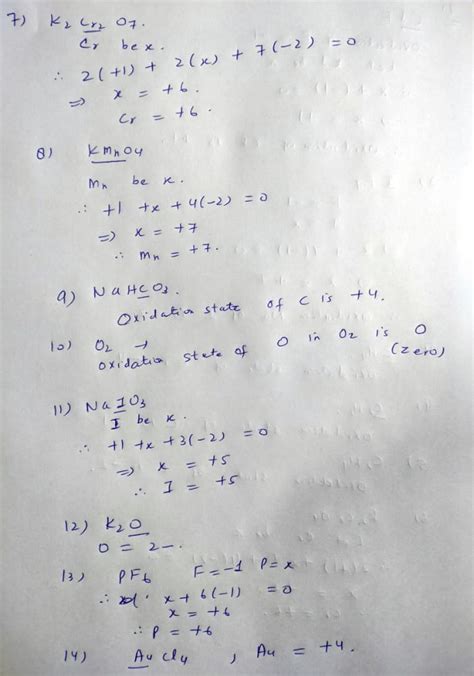 7) K2 Cr2 O7.
Cr be x.
∴ 2(+1) + 2(x) + 7(-2) = 0
⇒ x = +6.
Cr = +6.
8) KMnO4
Mn be x.
∴ +1 +x + 4(-2) = 0
⇒ x = +7
∴ Mn = +7.
9) NaHCO3.
Oxidation state of C is +4.
10) O2 →
Oxidation state of O in O2 is 0
(zero)
11) NaIO3
I be x.
∴ +1 +x +3(-2) = 0
⇒ x = +5
∴ I = +5
12) K2O
O = 2-.
13) PF6 F=-1 P=x
∴ x + 6(-1) = 0
x = +6
∴ P = +6
14) AuCl4 , Au = +4.